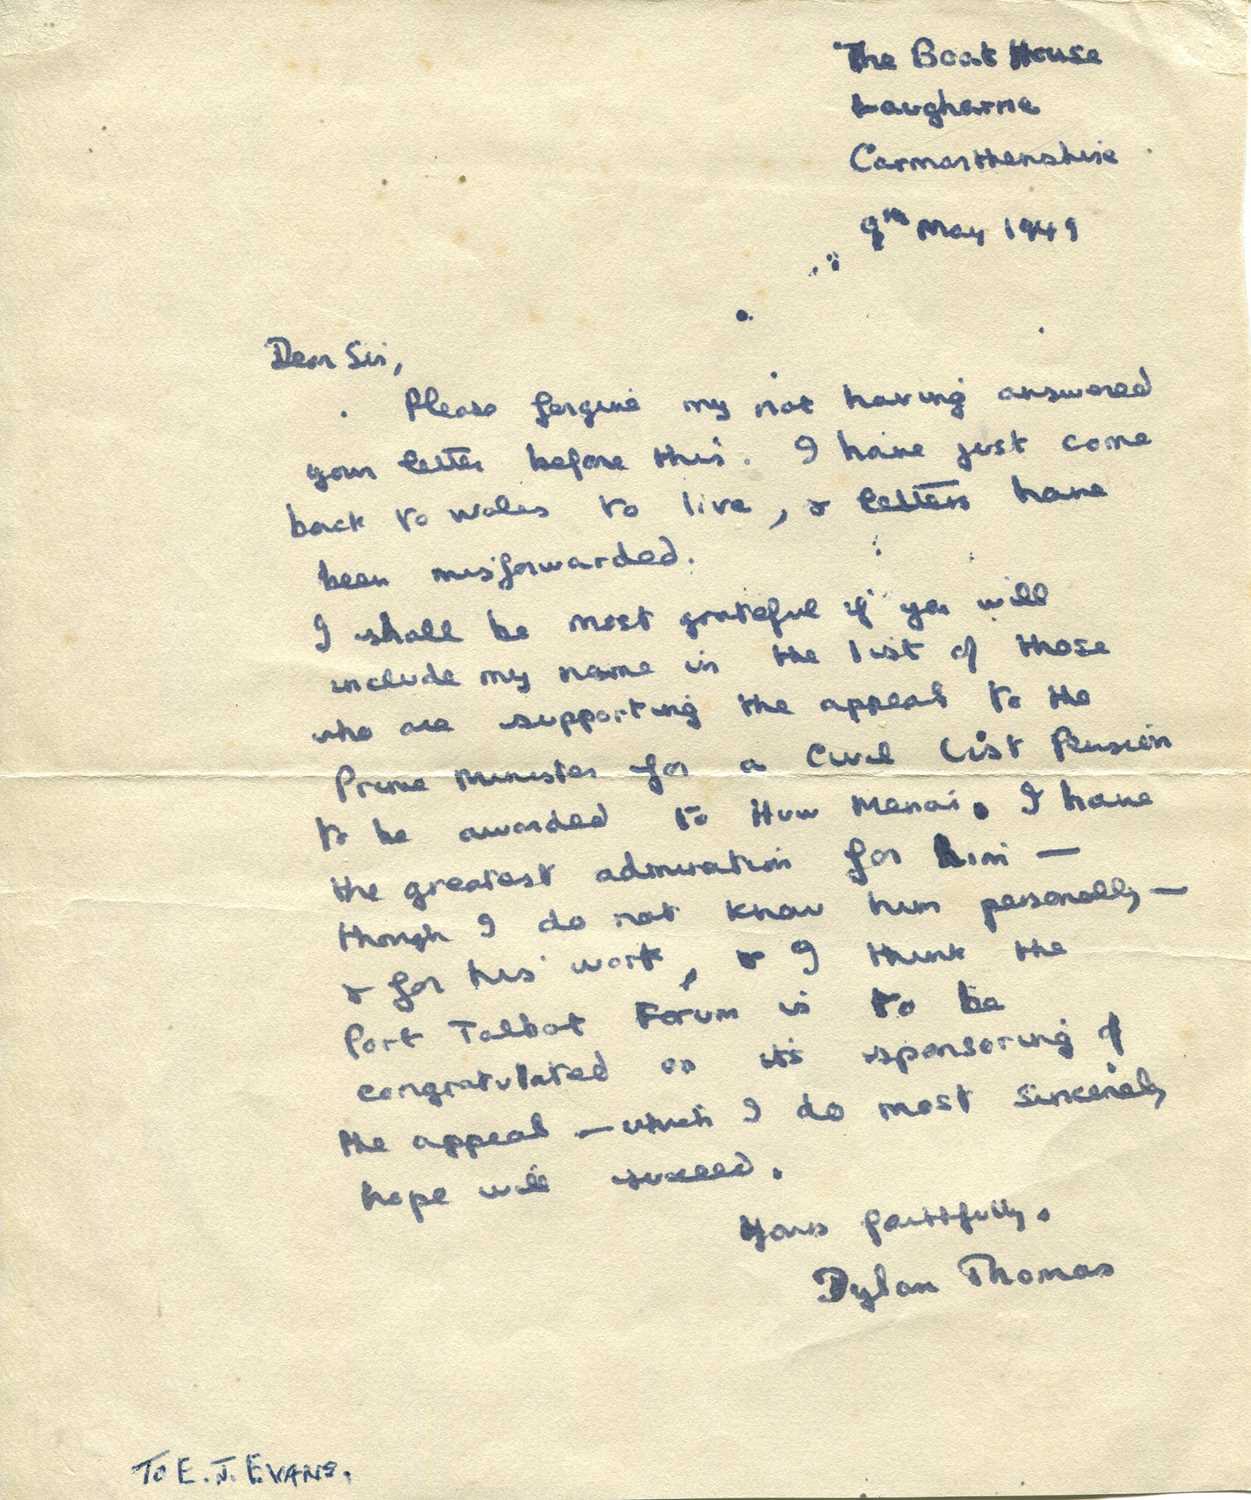 The Boat House
Laugharne
Carmarthenshire
9th May 1949
Dear Sir,
Please forgive my not having answered
your letter before this. I have just come
back to Wales to live, & letters have
been misforwarded.
I shall be most grateful if you will
include my name in the list of those
who are supporting the appeal to the
Prime Minister for a Civil List Pension
to be awarded to Huw Menai. I have
the greatest admiration for him —
though I do not know him personally —
& for his work, & I think the
Port Talbot Forum is to be
congratulated on its sponsoring of
the appeal — which I do most sincerely
hope will succeed.
Yours faithfully,
Dylan Thomas
To E. J. EVANS.